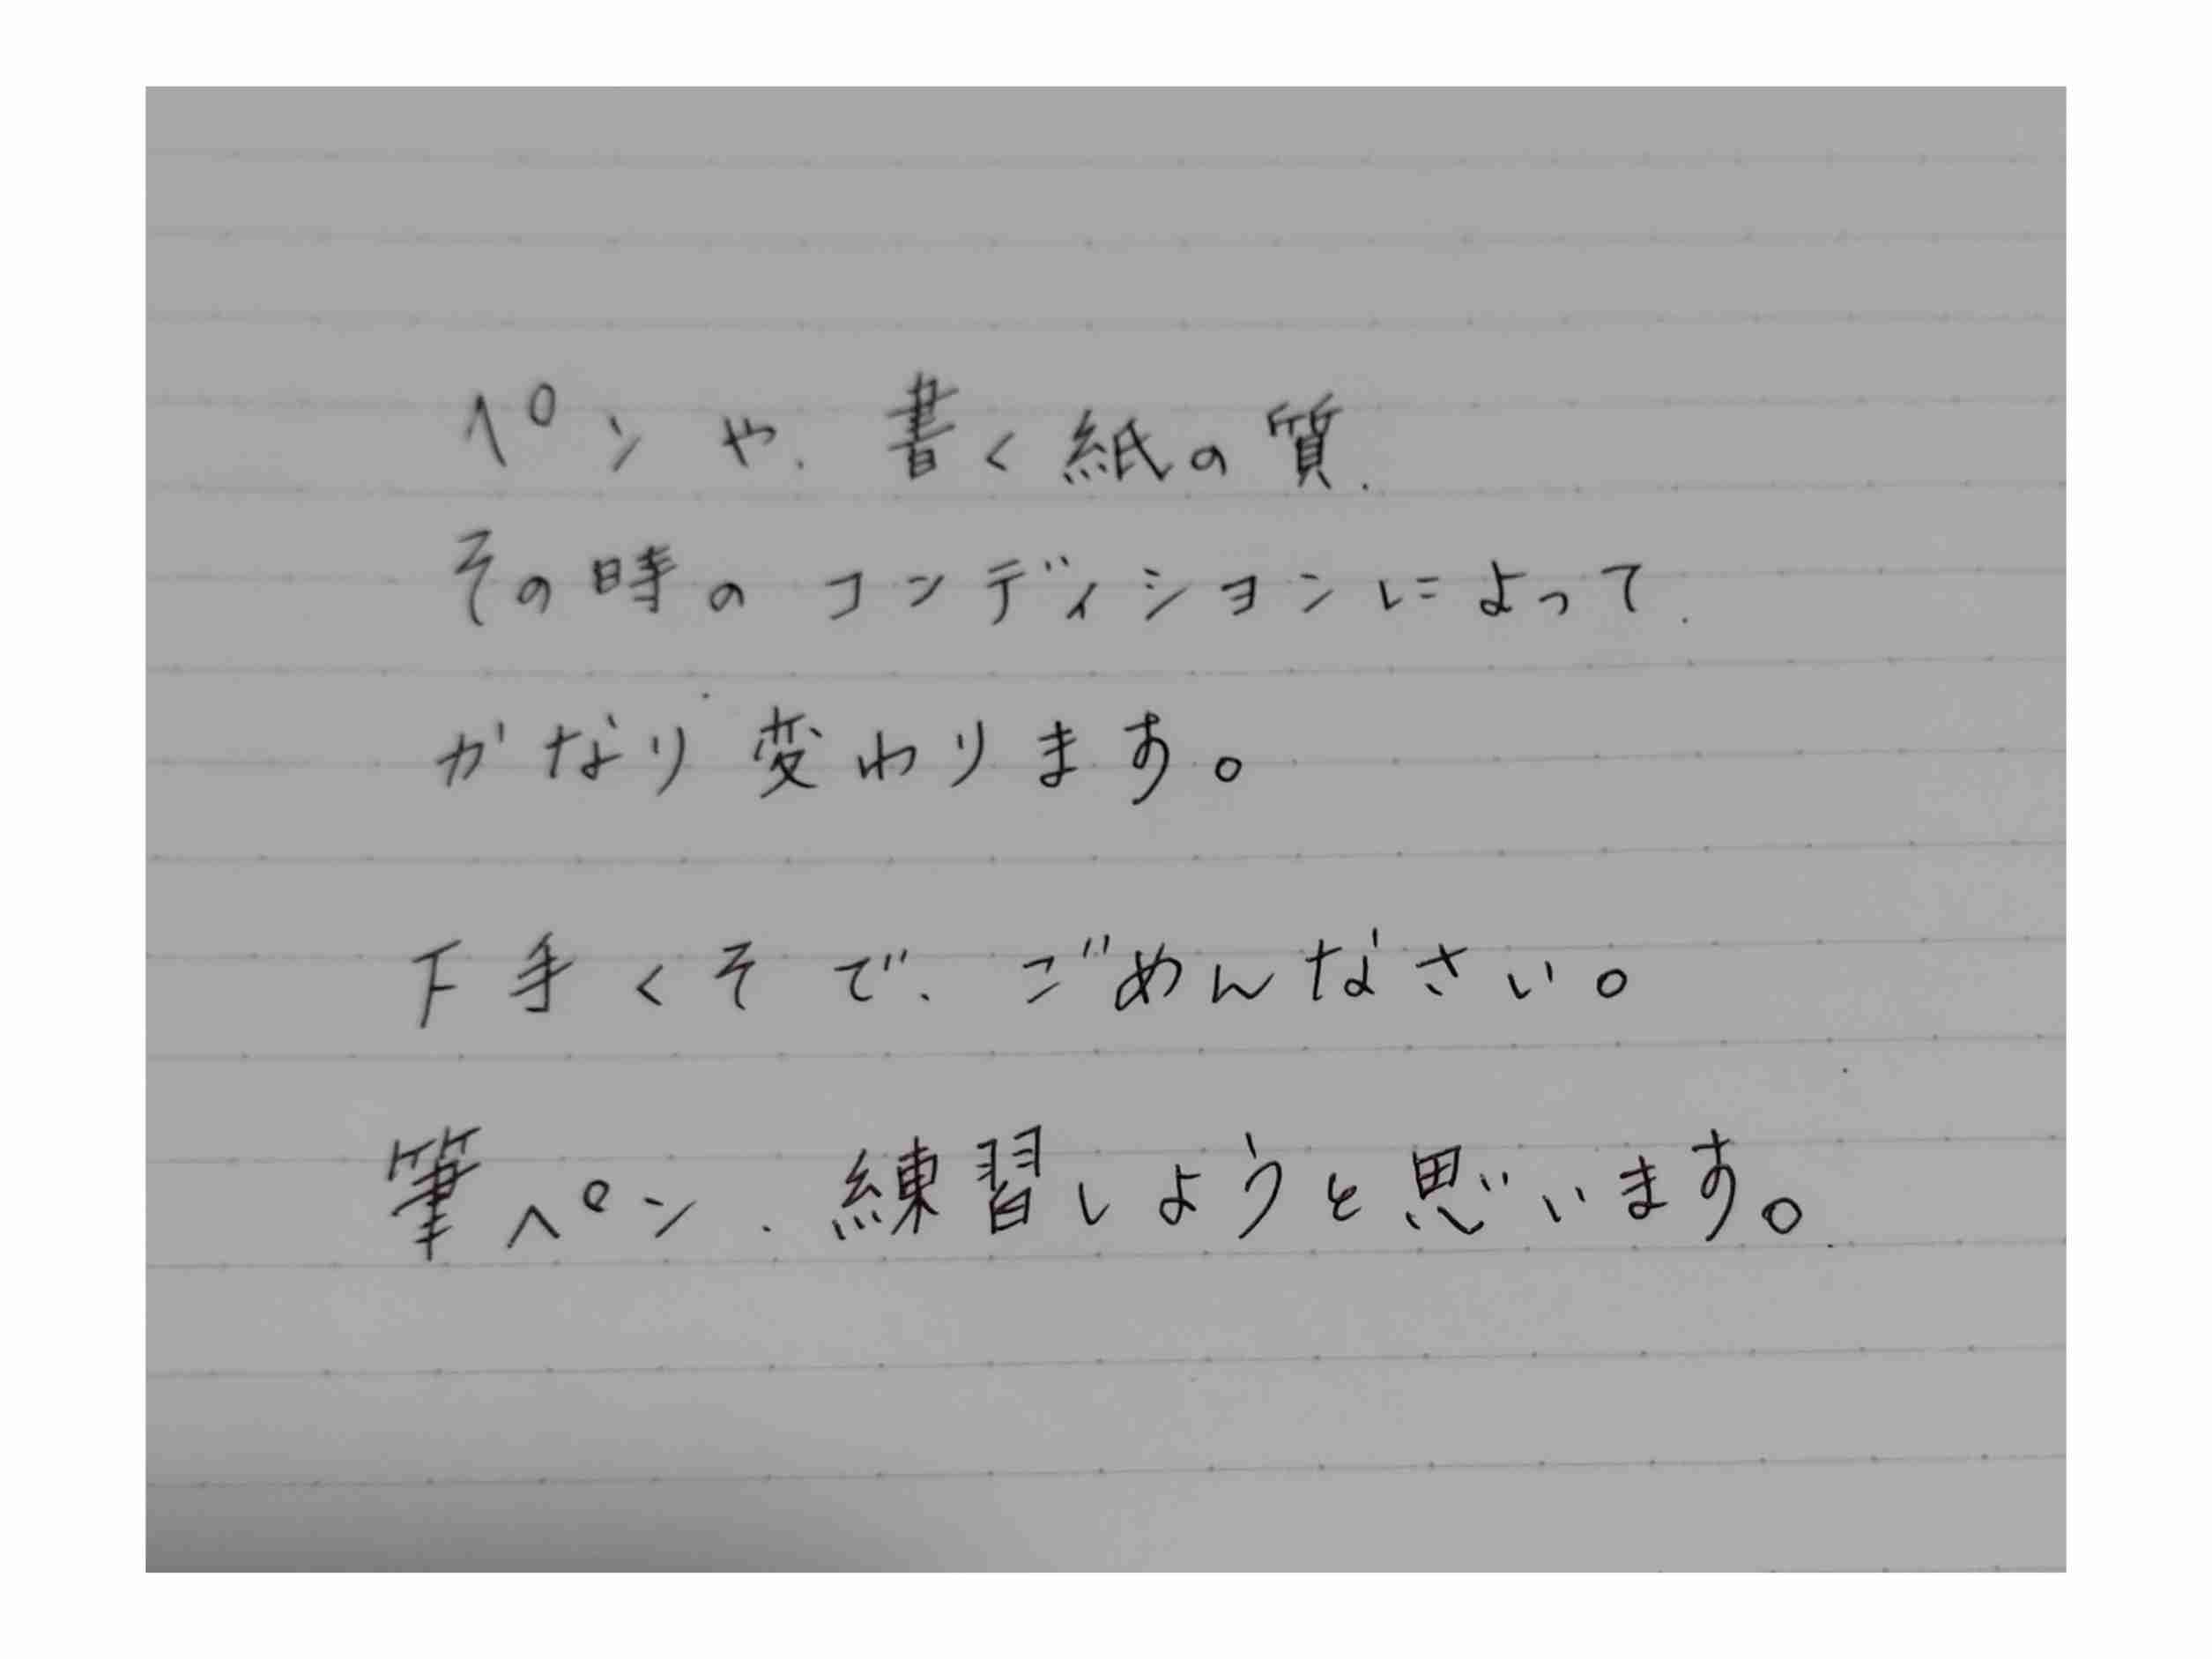 ペンや、書く紙の質、
その時のコンディションによって、
かなり変わります。
下手くそで、ごめんなさい。
筆ペン、練習しようと思います。